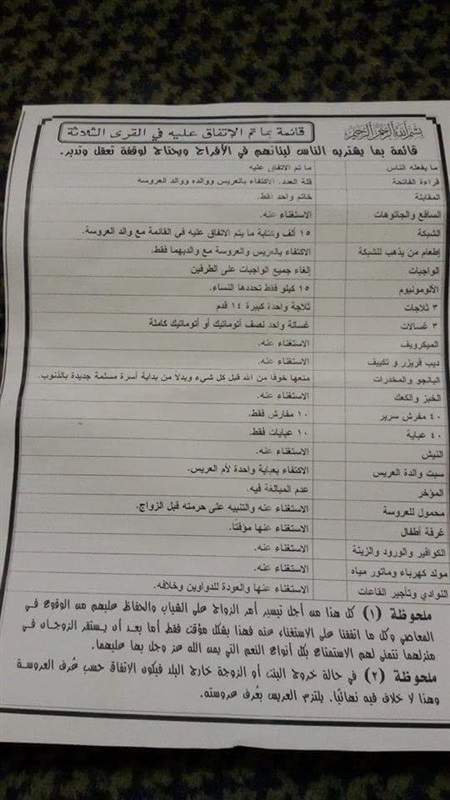 بسم الله الرحمن الرحيم
قائمة بما تم الإتفاق عليه في القرى الثلاثة
قائمة بما يشتريه الناس لبناتهم في الأفراح ويحتاج لوقفة تعقل وتدبر.
ما يفعله الناس ما تم الاتفاق عليه
قراءة الفاتحة قلة العدد. الاكتفاء بالعريس ووالده ووالد العروسة
المقابلة خاتم واحد فقط.
السافع والجاتوهات الاستغناء عنه.
الشبكة ١٥ ألف وكتابة ما يتم الاتفاق عليه فى القائمة مع والد العروسة.
إطعام من يذهب للشبكة الاكتفاء بالعريس والعروسة مع والديهما فقط.
الواجبات إلغاء جميع الواجبات على الطرفين
الألومونيوم ١٥ كيلو فقط تحددها النساء.
٣ ثلاجات ثلاجة واحدة كبيرة ١٤ قدم
٣ غسالات غسالة واحد نصف أتوماتيك أو أتوماتيك كاملة
الميكرويف الاستغناء عنه.
ديب فريزر و تكييف الاستغناء عنه.
البانجو والمخدرات منعها خوفا من الله قبل كل شيء وبدلا من بداية أسرة مسلمة جديدة بالذنوب.
الخبز والكعك الاستغناء عنه.
٤٠ مفرش سرير ١٠ مفارش فقط.
٤٠ عباية ١٠ عبايات فقط.
النيش الاستغناء عنه.
سبت والدة العريس الاكتفاء بعباية واحدة لأم العريس.
المؤخر عدم المبالغة فيه.
محمول للعروسة الاستغناء عنه والتنبيه على حرمته قبل الزواج.
غرفة أطفال الاستغناء عنها مؤقتا.
الكوافير والورود والزينة الاستغناء عنه.
مولد كهرباء وماتور مياه الاستغناء عنه.
النوادي وتأجير القاعات الاستغناء عنها والعودة للدواوين وخلافه.
ملحوظة (١) كل هذا من أجل تيسير أمر الزواج على الشباب والحفاظ عليهم من الوقوع في
المعاصي وكل ما اتفقنا على الاستغناء عنه فهذا بشكل مؤقت فقط أما بعد أن يستقر الزوجان في
منزلهما نتمنى لهم الاستمتاع بكل أنواع النعم التي يمن الله عز وجل بها عليهما.
ملحوظة (٢) في حالة خروج البنت أو الزوجة خارج البلد فيكون الاتفاق حسب عُرف العروسة
وهذا لا خلاف فيه نهائيًا. يلتزم العريس بعُرف عروسته.